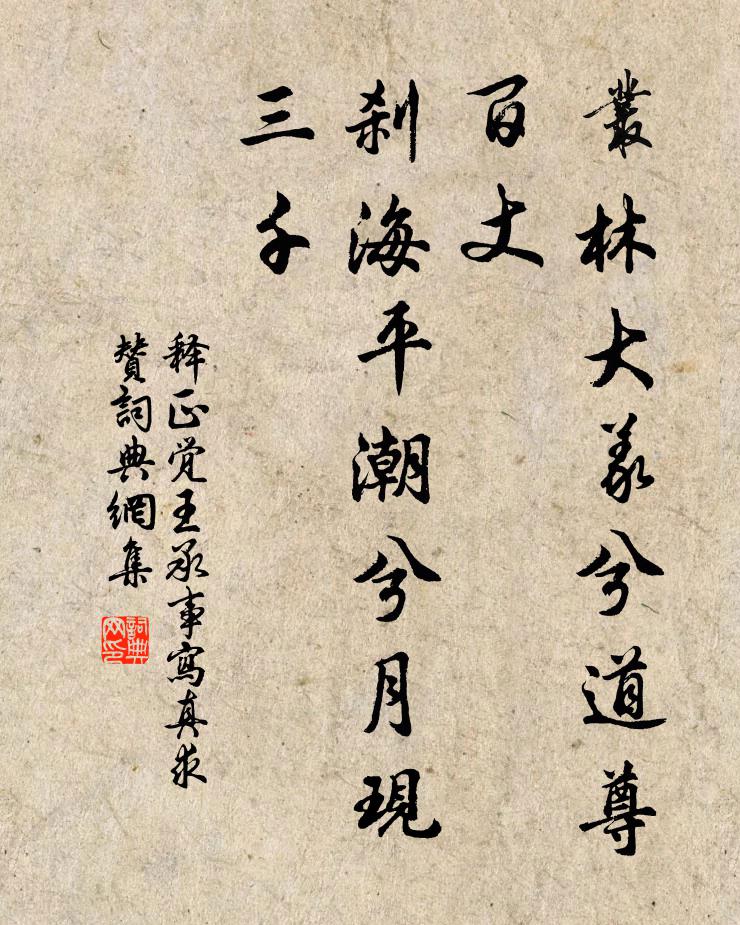 叢林大義兮道尊
百丈
刹海平潮兮月現
三千
释正觉王承事寫真求
賛詞典網集
詞典
网印